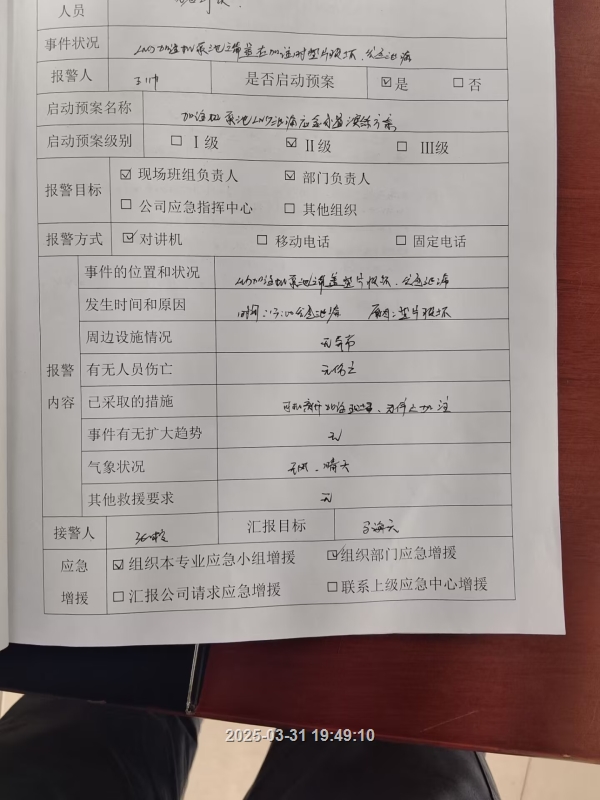 人员
事件状况 LNG加注机泵池法兰盖在加注时垫片损坏，发生泄漏
报警人 是否启动预案 ☑是 □否
启动预案名称 加注机泵池LNG泄漏应急处置演练方案
启动预案级别 □ Ⅰ级 ☑ Ⅱ级 □ Ⅲ级
报警目标 ☑ 现场班组负责人 ☑ 部门负责人
□ 公司应急指挥中心 □ 其他组织
报警方式 ☑ 对讲机 □ 移动电话 □ 固定电话
报警内容
事件的位置和状况 垫片损坏，发生泄漏
发生时间和原因 时间：13:00发生泄漏 原因：垫片损坏
周边设施情况 无异常
有无人员伤亡 无伤亡
已采取的措施
事件有无扩大趋势 无
气象状况 无风、晴天
其他救援要求 无
接警人 汇报目标
应急增援
☑ 组织本专业应急小组增援 ☑组织部门应急增援
□ 汇报公司请求应急增援 □联系上级应急中心增援
2025-03-31 19:49:10